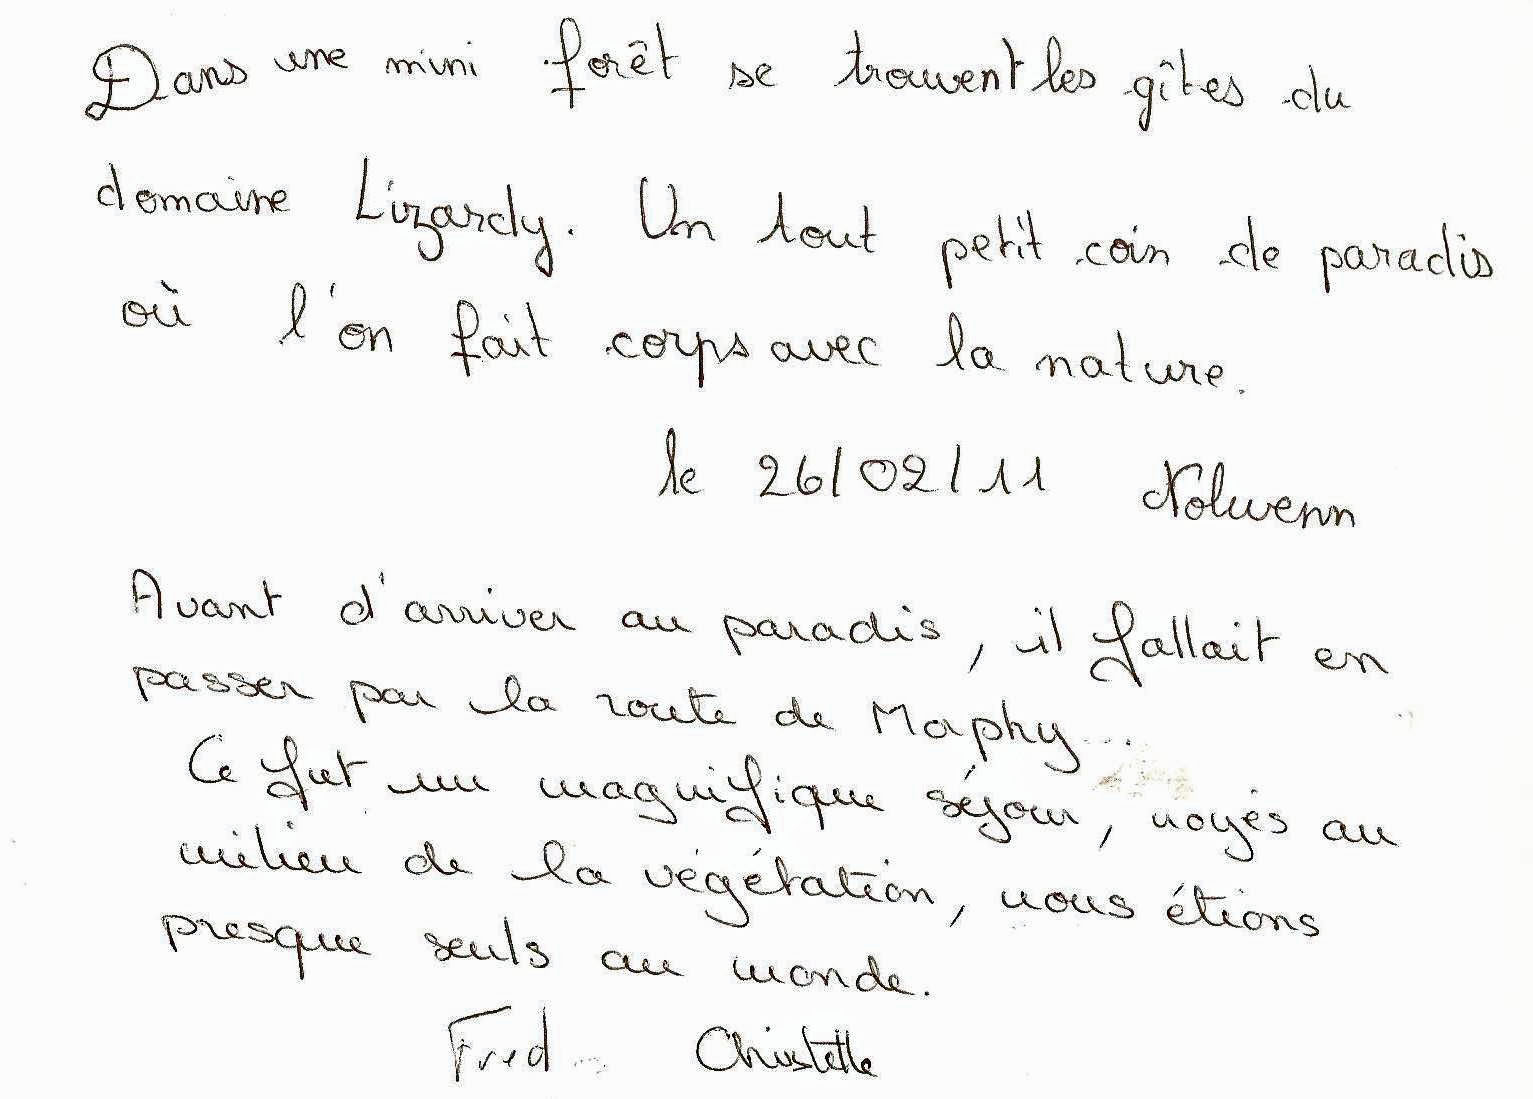 Dans une mini forêt se trouvent les gîtes du
domaine Lizardy. Un tout petit coin de paradis
où l'on fait corps avec la nature.
le 26/02/11 Nolwenn
Avant d'arriver au paradis, il fallait en
passer par la route de Maphy...
Ce fut un magnifique séjour, noyés au
milieu de la végétation, nous étions
presque seuls au monde.
Fred Christelle